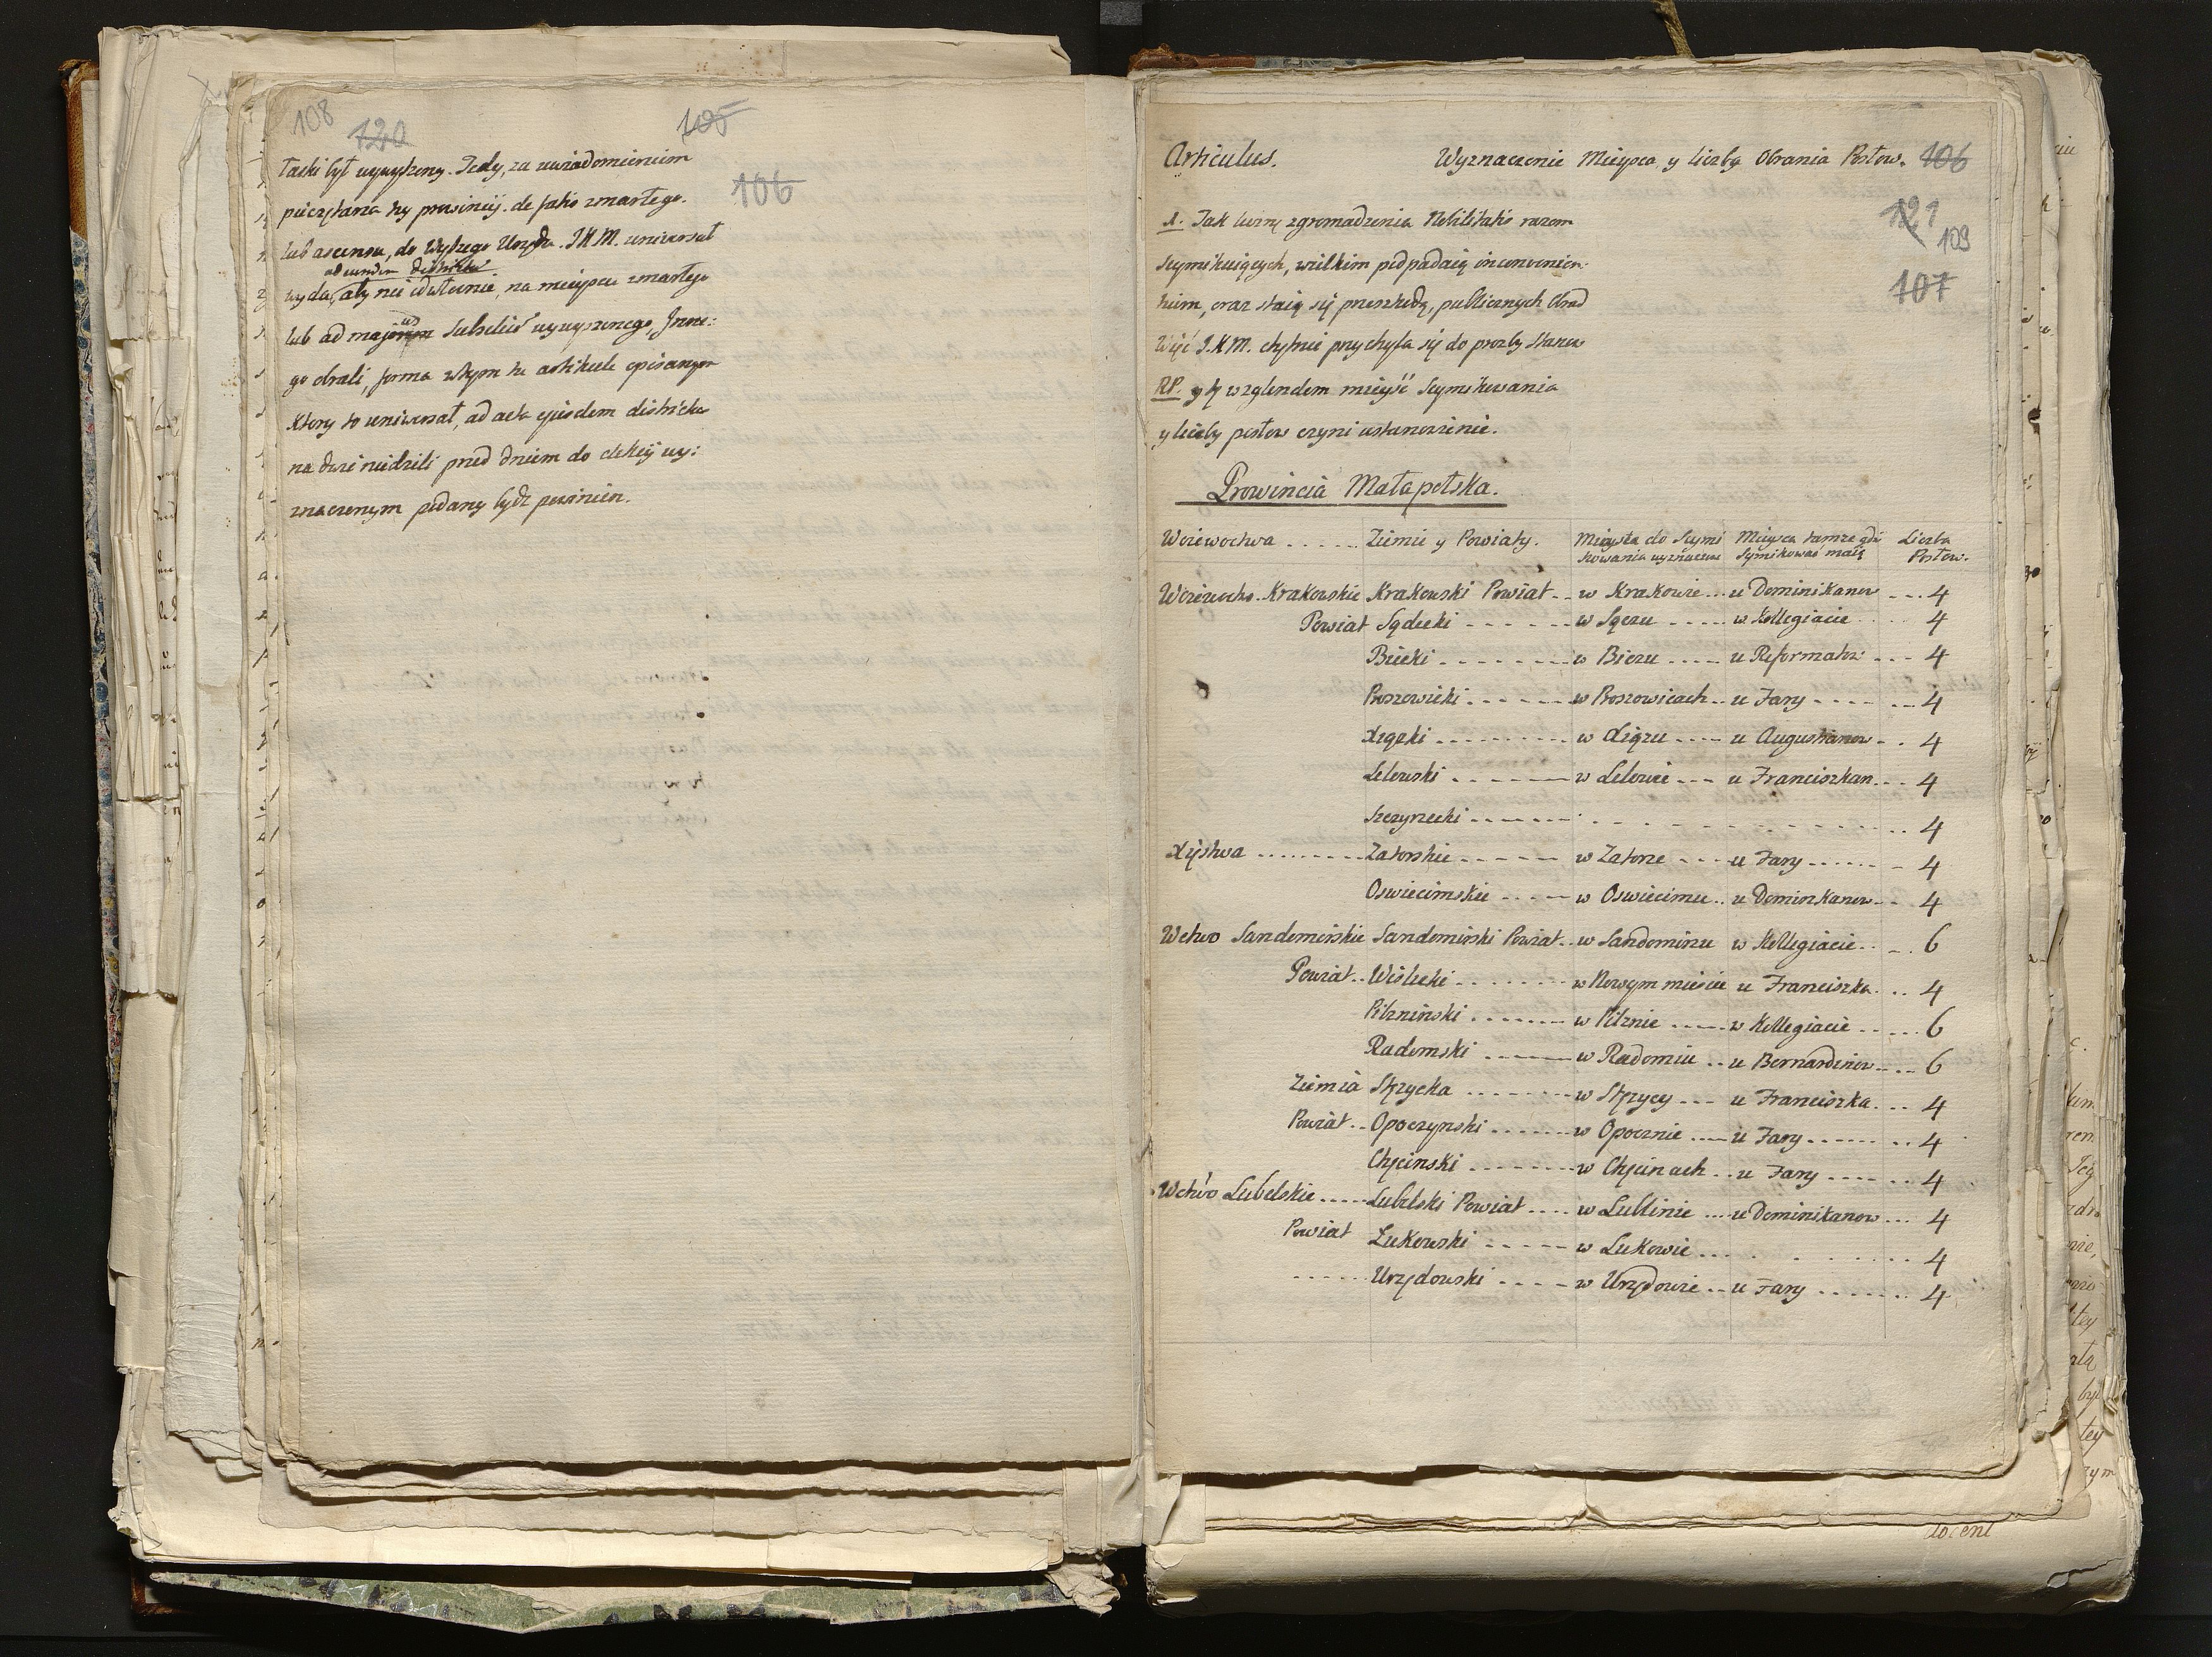 108 120 105
łaski był wywyższony. Tedy, za uwiadomieniem
pieczętarza tey prowincij. de fatis zmarłego.
106
lub ascensu, do Wyższego Urzędu. J.K.M. uniwersał
ad eundem districtu
wyda, aby nie odwłocznie, na mieysce zmarłego
us
lub ad majorum subsellius wywyszonego, Inne:
go obrali, forma wtym tu artikule opisanym
Ktory to uniwersał, ad acta ejusdem districtus
na dwie niedzieli przed dniem do elekcij wy:
znaczonym podany bydz powinien.
Articulus. Wyznaczenie Mieysca, y liczby Obrania Posłow. 106
121
109
107
1. Jak liczny zgromadzenia Nobilitatis razem
Seymikuiących, wielkim podpadaią inconvenien:
tium, oraz staią się przeszkodą, publicznych Obrad
Więc J.K.M. chętnie przychyla się do prozby Stanow
RP. y ty względem mieysć Seymikowania
y liczby posłow czyni ustanowienie.
Prowincia Małapolska.
Woiewodztwa ..... Ziemie y Powiaty. Mieysca do Seymi Mieysca tamze gdzie Liczba
kowania wyznaczone Symikować maią Posłow.
Woiewodz. Krakowskie Krakowski Powiat .. w Krakowie ... u Dominikanow ... 4
Powiat Sądecki ...... w Sączu ..... w Kollegiacie .... 4
Biecki ....... w Bieczu ..... u Reformatow ... 4
Proszowicki ...... w Proszowicach .. u Fary ....... 4
Xiązki ......... w Xiązu .... u Augustianow .. 4
Lelowski ....... w Lelowie ... u Franciszkan ... 4
Szczyrzecki ....... 4
Xięstwa ......... Zatorskie ...... w Zatorze .... u Fary ....... 4
Oswiecimskie ..... w Oswiecimu .. u Dominikanow .. 4
Wctwo Sandomirskie Sandomirski Powiat .. w Sandomirzu w Kollegiacie .... 6
Powiat .. Wislicki ........ w Nowym miescie u Franciszka ... 4
Pilzninski ....... w Pilznie ..... w Kollegiacie ..... 6
Radomski ...... w Radomiu .. u Bernardinow .... 6
Ziemia Stęzycka ........ w Stęzycy ... u Franciszka ... 4
Powiat .. Opoczynski ....... w Opocznie .... u Fary ........ 4
Chęcinski ........ w Chęcinach .. u Fary ....... 4
Wctwo Lubelskie ..... Lubelski Powiat .... w Lublinie .... u Dominikanow ... 4
Powiat Łukowski ..... w Łukowie ....... 4
...... Urzędowski .... w Urzędowie .. u Fary ....... 4
docent